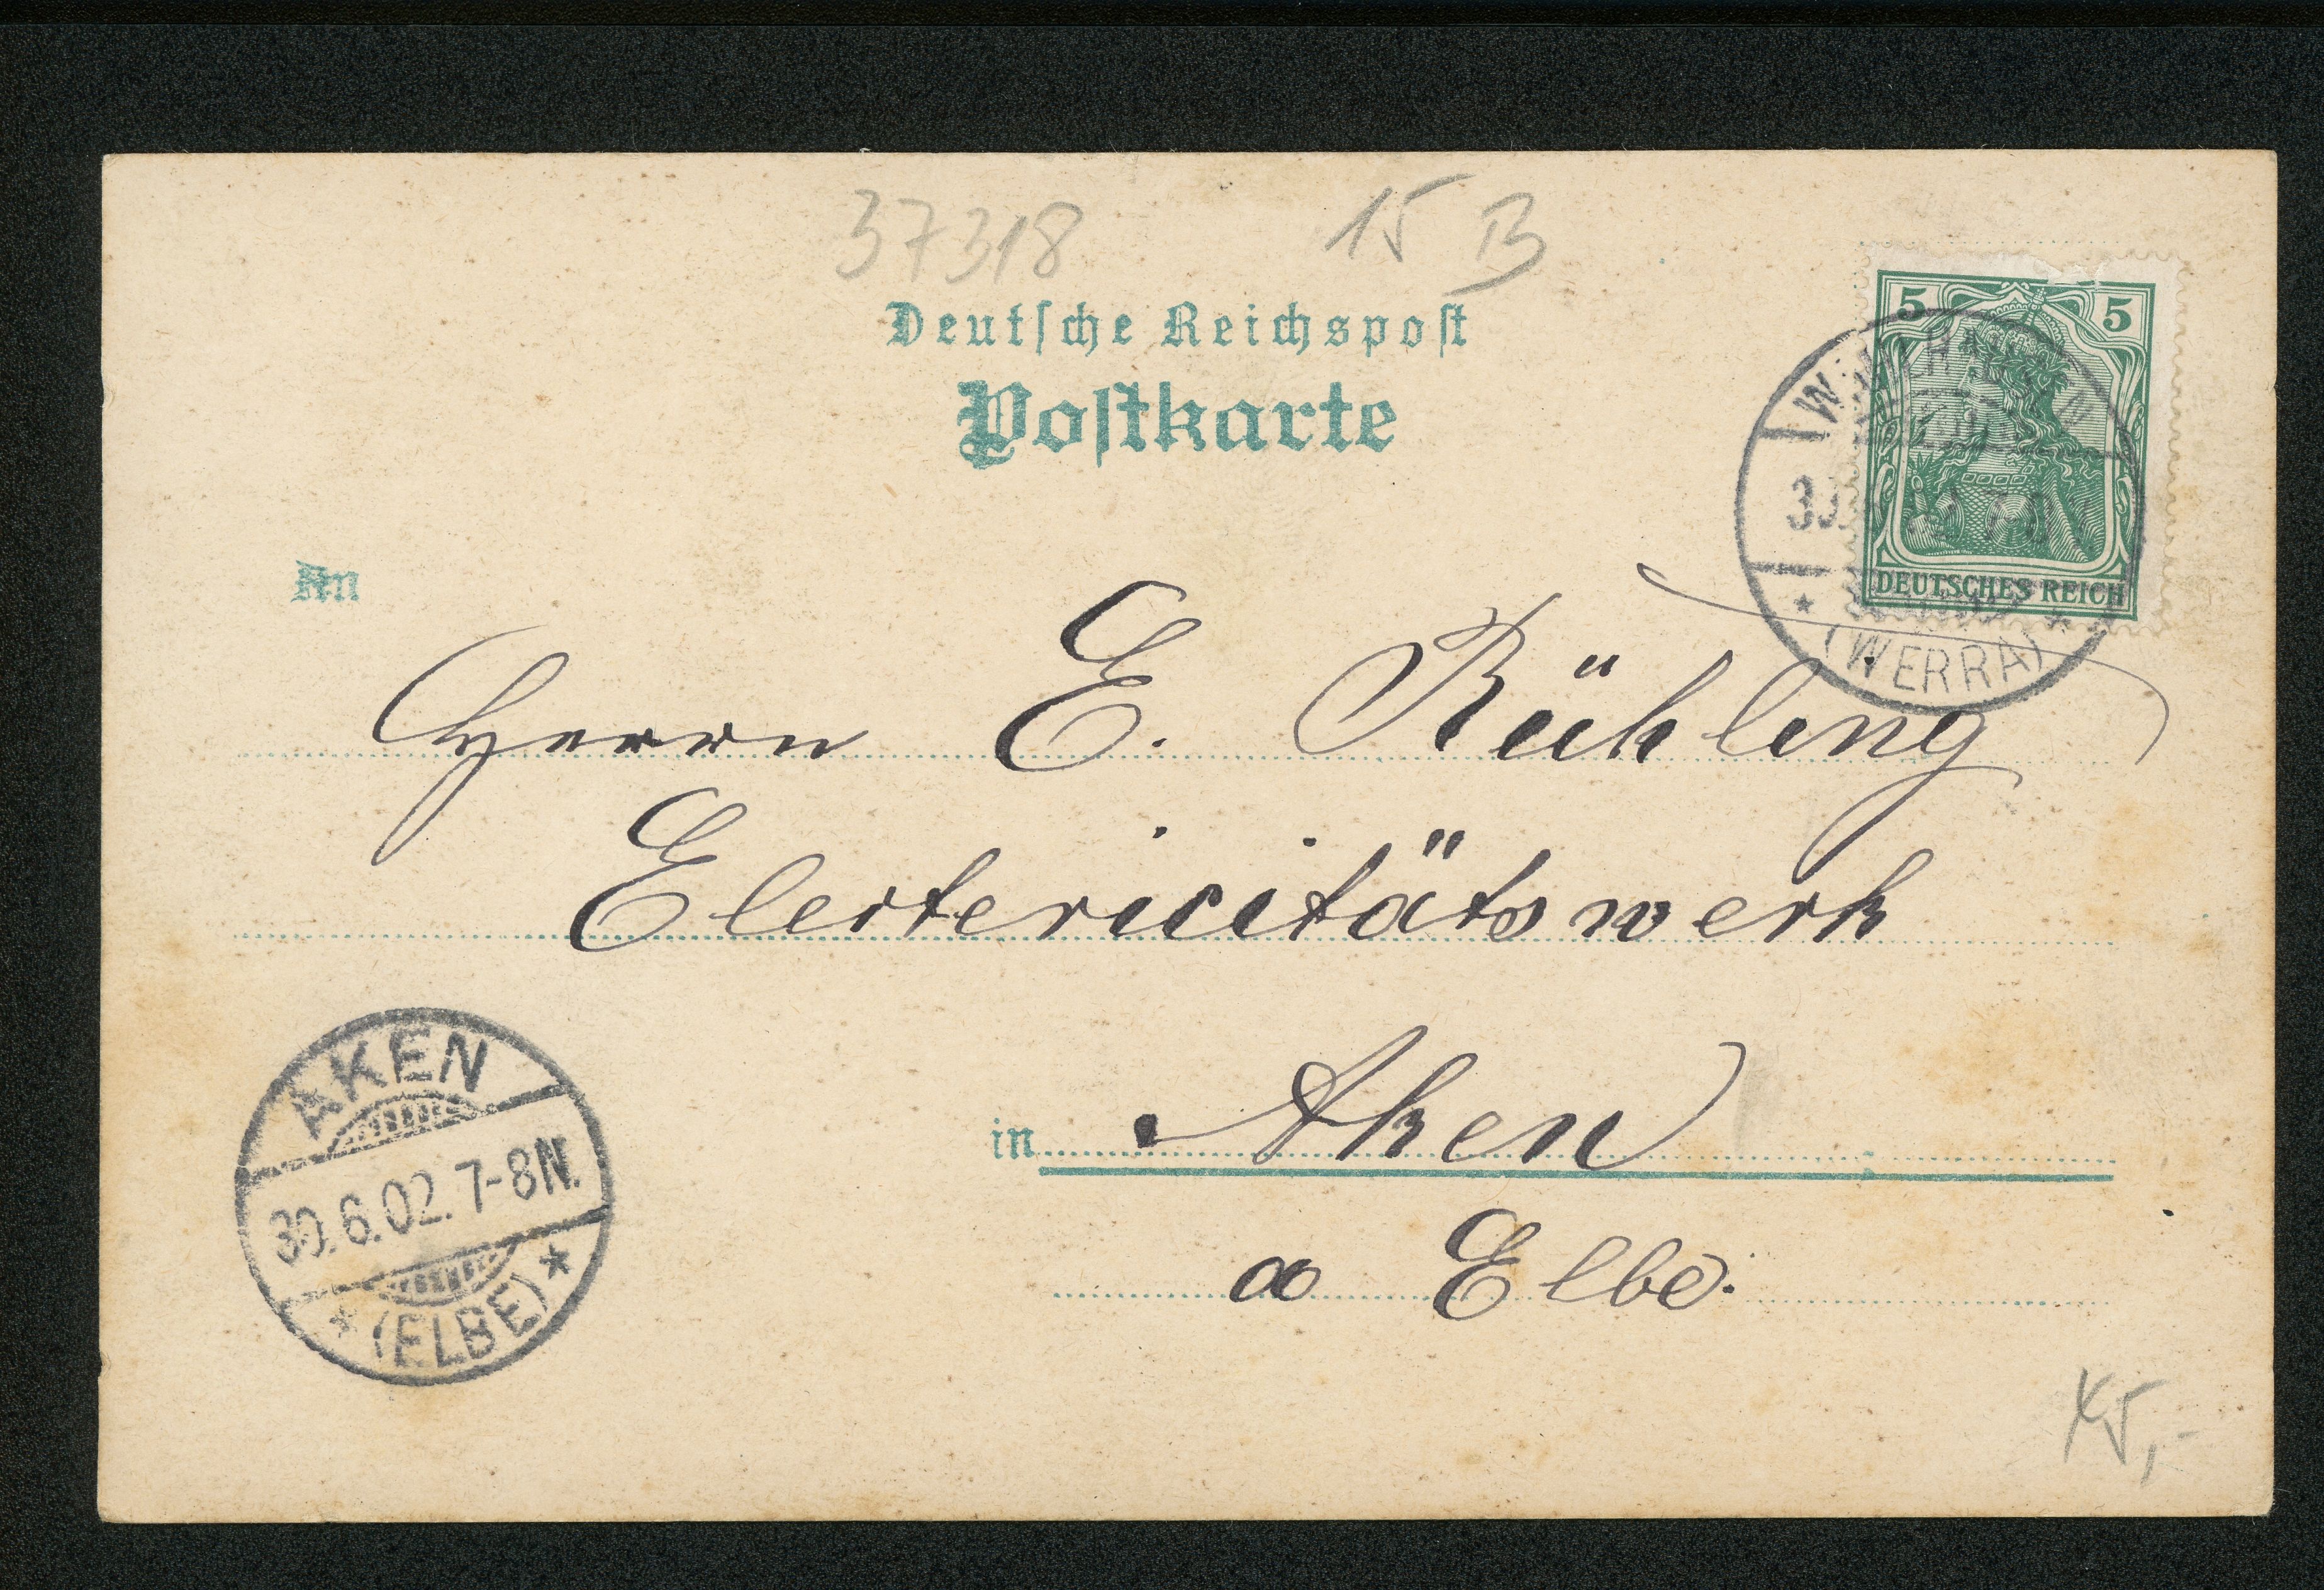 37318
15 B
Deutsche Reichspost
Postkarte
5 5
DEUTSCHES REICH
(WERRA)
An
Herrn E. Rühling
Electericitätswerk
in Aken
a Elbe.
AKEN
30.6.02.7-8N.
(ELBE)